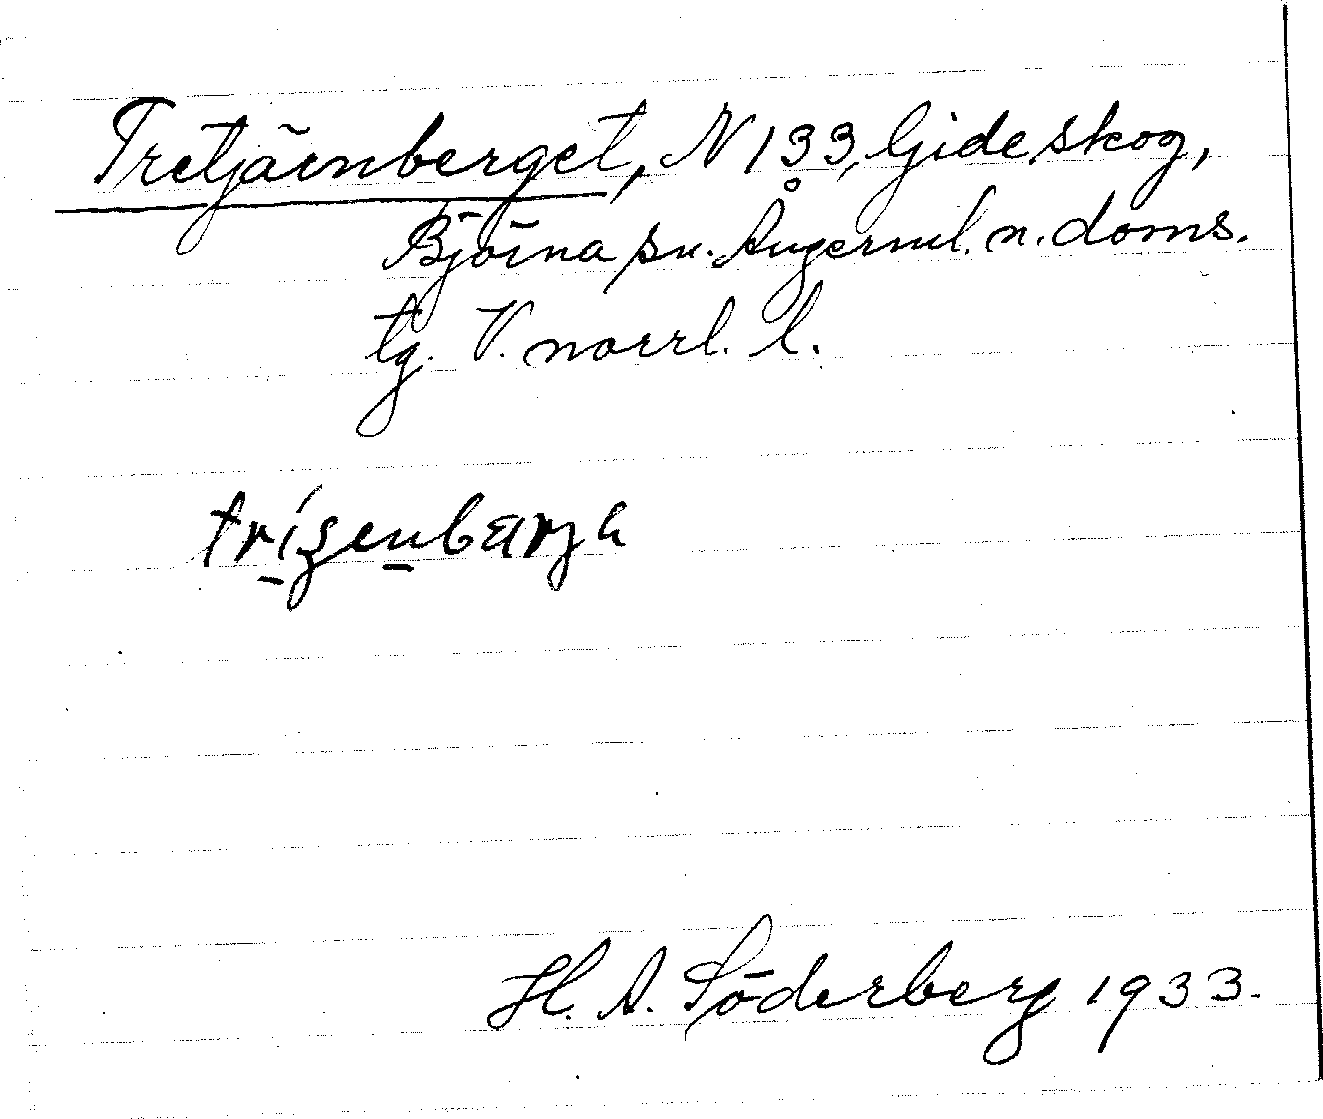 Tretjärnberget, N 133, Gideskog,
Björna sn. Ångerml. n. doms.
tg. V. norrl. l.
H. A. Söderberg 1933.